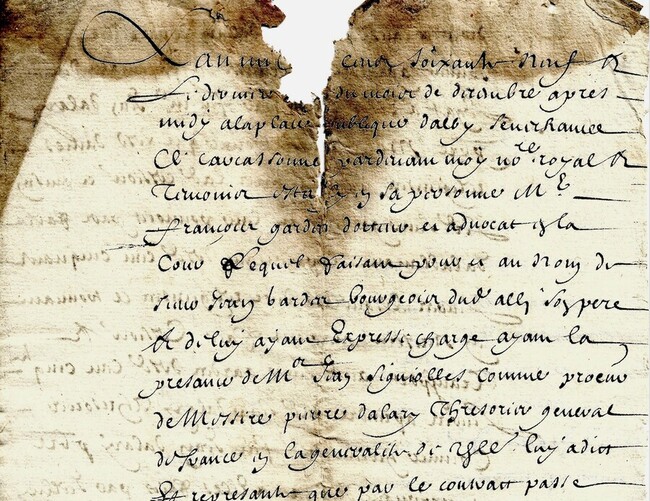 L an mil cinq soixante neuf &
le dixiesme du mois de decembre apres
midy a la place publique dalby seneschaucee
de carcassonne pardevant moy no.re royal &
tesmoins estably en sa personne M.r
françois docteur et advocat en la
Cour lequel faisant pour et au nom de
bourgeois dud alby son pere
& de luy ayant Expresse charge ayant la
presance de M.r comme procur
de Messire pierre dalary Thresorier general
de france en la generalite de luy a dict
Et represanté que par le contract passe